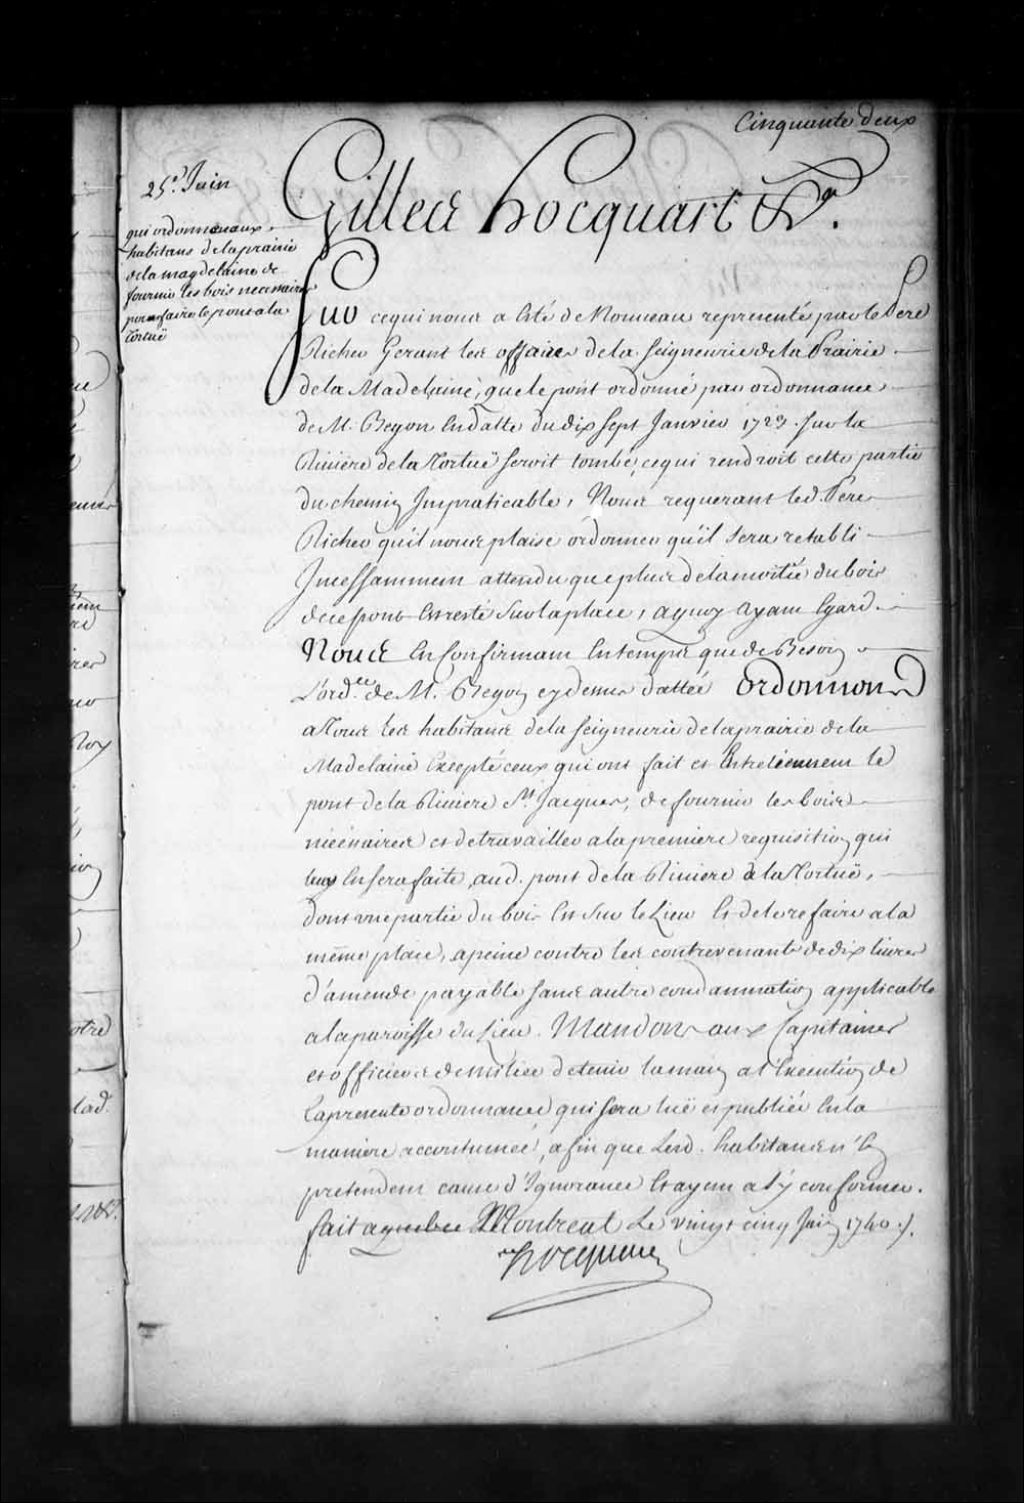 Cinquante deux
25e. Juin
qui ordonne aux
habitans de la prairie
de la magdelaine de
fournir les bois necessaires
pour faire le pont a la
Tortuë
Gilles hocquart &ca.
Sur ce qui nous a Eté de Nouveau representé par le Pere
Richer Gerant les affaires de la Seigneurie de la Prairie
de la Madelaine, que le pont ordonné par ordonnance
de M. Begon En datte du dix sept Janvier 1723. Sur la
Riviere de la Tortuë seroit tombé, ce qui rendroit cette partie
du chemin Impraticable, Nous requerant led. Pere
Richer qu'il nous plaise ordonner qu'il sera retabli
Incessamment attendu que plus de la moitié du bois
de ce pont Est resté Sur la place, a quoy ayant Egard.
Nous En Confirmant En temps que de Besoin
L'ordce. de M. Begon cy dessus dattée ordonnons
a Tous les habitans de la seigneurie de la prairie de la
Madelaine Excepté ceux qui ont fait et Entretiennent le
pont de la Riviere St. Jacques, de fournir les bois
nécessaires et de travailler a la premiere requisition qui
leur En sera faite, aud. pont de la Riviere de la Tortuë,
dont une partie du bois Est Sur le Lieu Et de le refaire a la
même place, a peine contre les contrevenants de dix livres
d'amende payable sans autre condamnation applicable
a la paroisse du Lieu. Mandons aux Capitaines
et officiers de milice de tenir la main a l'Execution de
La presente ordonnance qui sera luë et publiée En la
maniere accoutumée, afin que Lesd. habitans n'En
pretendent cause d'Ignorance Et ayent a s'y conformer.
fait a quebec Montreal Le vingt cinq Juin 1740 ./.
hocquart